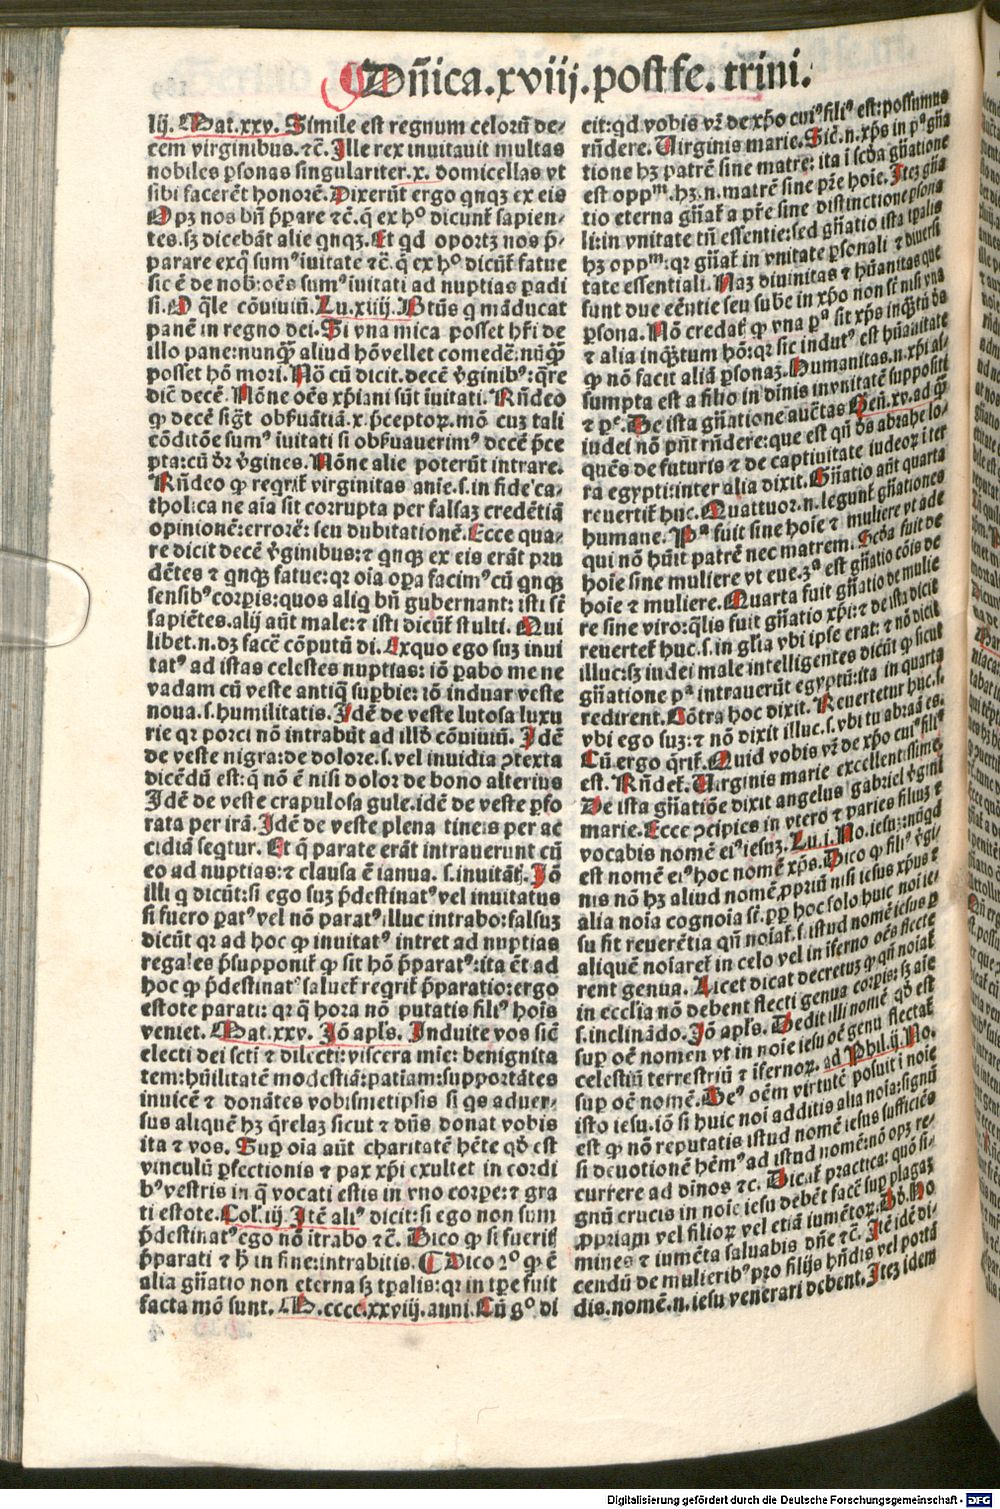 Dñica.xviij.post fe. trini.
lij. Mat.xxv. Simile est regnum celorū de-
cem virginibus.⁊c̄. Ille rex inuitauit multas
nobiles ꝑsonas singulariter.x. domicellas vt
sibi facerēt honorē. Dixerūt ergo qnqꝫ ex eis
Opꝫ nos bn̄ p̄parare ⁊c̄.q̄ ex hº dicunt̄ sapien-
tes.sꝫ dicebāt alie qnqꝫ. Et qd oportꝫ nos p̄-
parare exq̄ sumꝰ īuitate ⁊c̄.q̄ ex hº dicūt̄ fatue
sic ē de nob:oēs sumꝰ īuitati ad nuptias ꝑadi
si. O q̄le cōuiuiū. Lu.xiiij. Btūs q māducat
panē in regno dei. Si vna mica posset hr̄i de
illo pane:nunq̄ꝫ aliud hō vellet comedē:nūq̄ꝫ
posset hō mori. Nō cū dicit.decē v̄ginibꝰ:q̄re
dic̄ decē. Nōne oēs xp̄iani sūt īuitati. Rn̄deo
ꝙ decē sigt̄ obẜuātiā.x.p̄ceptoꝝ.mō cuꝫ tali
cōditōe sumꝰ īuitati si obẜuauerimꝰ decē p̄ce
pta:cū dr̄ v̄gines. Nōne alie poterūt intrare.
Rn̄deo ꝙ reqrit̄ virginitas aīe.s.in fide ca-
tholica ne aīa sit corrupta per falsaꝫ credētiā
opinionē:errorē: seu dubitationē. Ecce qua-
re dicit decē v̄ginibus:⁊ qnqꝫ ex eis erāt pru
dētes ⁊ qnqꝫ fatue:qꝛ oīa oꝑa facimꝰ cū qnqꝫ
sensibꝰ corꝑis:quos aliq bn̄ gubernant: isti st̄
sapiētes.alij aūt male:⁊ isti dicūt̄ stulti. Qui
libet.n.dꝫ facē cōputū di. Exquo ego suꝫ inui
tatꝰ ad istas celestes nuptias: iō ꝑabo me ne
vadam cū veste antiq̄ suꝑbie: iō induar veste
noua.s.humilitatis. Idē de veste lutosa luxu
rie qꝛ porci nō intrabūt ad illd̄ cōuiuiū. Idē
de veste nigra:de dolore.s.vel inuidia ꝯtexta
dicēdū est:q̄ nō ē nisi dolor de bono alterius
Idē de veste crapulosa gule.idē de veste ꝑfo
rata per irā. Idē de veste plena tineis per ac
cidiā seqtur. Et q̄ parate erāt intrauerunt cū
eo ad nuptias:⁊ clausa ē ianua. s.inuitat̄. Iō
illi q dicūt:si ego suꝫ p̄destinatꝰ vel inuitatus
si fuero ꝑatꝰ vel nō paratꝰ illuc intrabo:falsuꝫ
dicūt qꝛ ad hoc ꝙ inuitatꝰ intret ad nuptias
regales p̄supponit̄ ꝙ sit hō p̄paratꝰ:ita ēt ad
hoc ꝙ p̄destinatꝰ saluet̄ reqrit̄ p̄paratio:ergo
estote parati: qꝛ q̄ hora nō putatis filiꝰ hoīs
veniet. Mat.xxv. Iō apl̄s. Induite vos sic̄
electi dei sc̄ti ⁊ dilecti:viscera mīe: benignita
tem:hūilitatē modestiā:patiam:supportātes
inuicē ⁊ donātes vobismetipsis si qs aduer-
sus aliquē hꝫ q̄relaꝫ sicut ⁊ dn̄s donat vobis
ita ⁊ vos. Suꝑ oīa aūt charitatē hēte qd̄ est
vinculū ꝑfectionis ⁊ pax xp̄i exultet in cordi
bꝰ vestris in q̄ vocati estis in vno corꝑe:⁊ gra
ti estote. Col̄.iij. Itē aliꝰ dicit:si ego non sum
p̄destinatꝰ ego nō ītrabo ⁊c̄. Dico ꝙ si fuerit
p̄parati ⁊ h̄ in fine:intrabitis. ¶ Dico 2º ꝙ ē
alia gn̄atio non eterna sꝫ tꝑalis:qꝛ in tꝑe fuit
facta mō sunt. M.cccc.xxviij.anni. Cū gº di
cit:qd vobis vr̄ de xp̄o cuiꝰ filiꝰ est:possumus
rn̄dere. Virginis marie. Sic̄.n.xp̄s in pª gn̄a
tione hꝫ patrē sine matre: ita ī scd̄a gn̄atione
est oppᵐ.hꝫ.n.matrē sine pr̄e hoīe. Iteꝫ gn̄a
tio eterna gn̄at̄ a pr̄e sine distinctione ꝑsona
li:in vnitate tn̄ essentie:sed gn̄atio ista tꝑalis
hꝫ oppᵐ:qꝛ gn̄at̄ in vnitate ꝑsonali ⁊ diuersi
tate essentiali. Naꝫ diuinitas ⁊ hūanitas que
sunt due eēntie seu sube in xp̄o non st̄ nisi vna
ꝑsona. Nō credat̄ ꝙ vna pª sit xp̄s inq̄ꝫtū d̄s
⁊ alia inq̄ꝫtum hō:qꝛ sic indutꝰ est hūanitate
ꝙ nō facit aliā ꝑsonaꝫ. Humanitas.n.xp̄i as-
sumpta est a filio in dīnis in vnitatē suppositi
⁊ pᵉ. De ista gn̄atione auctas Gen̄.xv.ad q̄ꝫ
iudei nō pn̄t rn̄dere:que est qn̄ d̄s abrahe lo-
quēs de futuris ⁊ de captiuitate iudeoꝝ ī ter
ra egypti:inter alia dixit. Gn̄atio aūt quarta
reuertit̄ huc. Quattuor.n.legunt̄ gn̄ationes
humane. Pª fuit sine hoīe ⁊ muliere vt ade
qui nō hūit patrē nec matrem. Scd̄a fuit de
hoīe sine muliere vt eue.3ª est gn̄atio cōis de
hoīe ⁊ muliere. Quarta fuit gn̄atio de mulie
re sine viro:q̄lis fuit gn̄atio xp̄i:⁊ de ista dicit
reuertet̄ huc.s.in gl̄ia vbi ipse erat: ⁊ nō dicit
illuc:sꝫ iudei male intelligentes dicūt ꝙ sicut
gn̄atione pª intrauerūt egyptū:ita in quarta
redirent. Cōtra hoc dixit. Reuertetur huc.s.
vbi ego suꝫ:⁊ nō dixit illuc.s.vbi tu abraā es.
Cū ergo q̄rit̄. Quid vobis vr̄ de xp̄o cuiꝰ filiꝰ
est. Rn̄det̄. Virginis marie excellentissime.
De ista gn̄atiōe dixit angelus gabriel v̄gini
marie. Ecce ꝯcipies in vtero ⁊ paries filiuꝫ ⁊
vocabis nomē eiꝰ iesuꝫ. Lu.i. No.iesu:nūqd
est nomē eiꝰ hoc nomē xp̄s. Dico ꝙ filiꝰ v̄gi-
nis nō hꝫ aliud nomē ꝓpriū nisi iesus xp̄us ⁊
alia noīa cognoīa st̄.ꝓp̄ hoc solo huic noī ie-
su fit reuerētia qn̄ noīat̄.s.istud nomē iesus ꝑ
aliquē noīaret̄ in celo vel in īferno oēs flecte
rent genua. Licet dicat decretuꝫ ꝙ qn̄ noīat̄
in eccl̄ia nō debent flecti genua corꝑis: sꝫ aīe
s.inclinādo. Iō apl̄s. Dedit illi nomē qd̄ est
suꝑ oē nomen vt in noīe iesu oē genu flectat̄
celestiū terrestriū ⁊ īfernoꝝ. ad Phil.ij. No.
suꝑ oē nomē. Deꝰ oēm virtutē posuit ī noīe
isto iesu.iō si huic noī additis alia noīa:signū
est ꝙ nō reputatis istud nomē iesus sufficiēs
si deuotionē hēmꝰ ad istud nomē:nō opꝫ re-
currere ad dinos ⁊c. Dicat̄ practica: quō si-
gnū crucis in noīe iesu debēt facē suꝑ plagaꝫ
ꝓpriam vel filioꝝ vel etiā iumētoꝝ. Dd̄. Ho
mines ⁊ iumēta saluabis dn̄e ⁊c̄. Itē idē di-
cendū de mulieribꝰ pro filijs hn̄dis vel portā
dis.nomē.n.iesu venerari debent. Iteꝫ idem
Digitalisierung gefördert durch die Deutsche Forschungsgemeinschaft - DFG